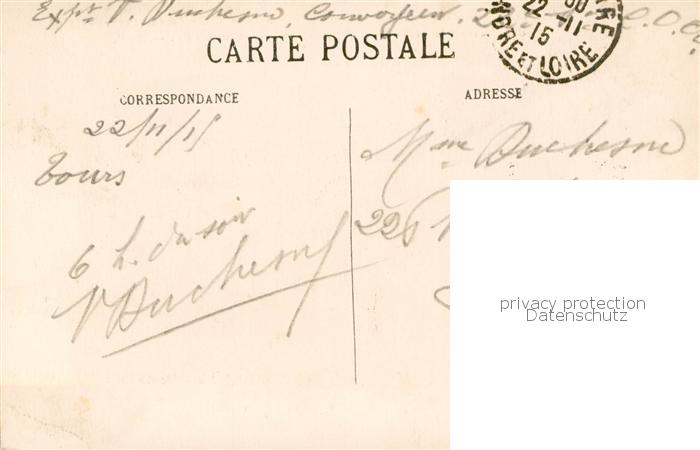 Expr V. Duchesne, Convoyeur.
CARTE POSTALE
22 -11
15
INDRE ET LOIRE
CORRESPONDANCE
ADRESSE
22/11/15
Tours
6 h. du soir
V Duchesne
Mme Duchesne
privacy protection
Datenschutz